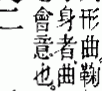 形曲鞠
身者曲
會意也
二